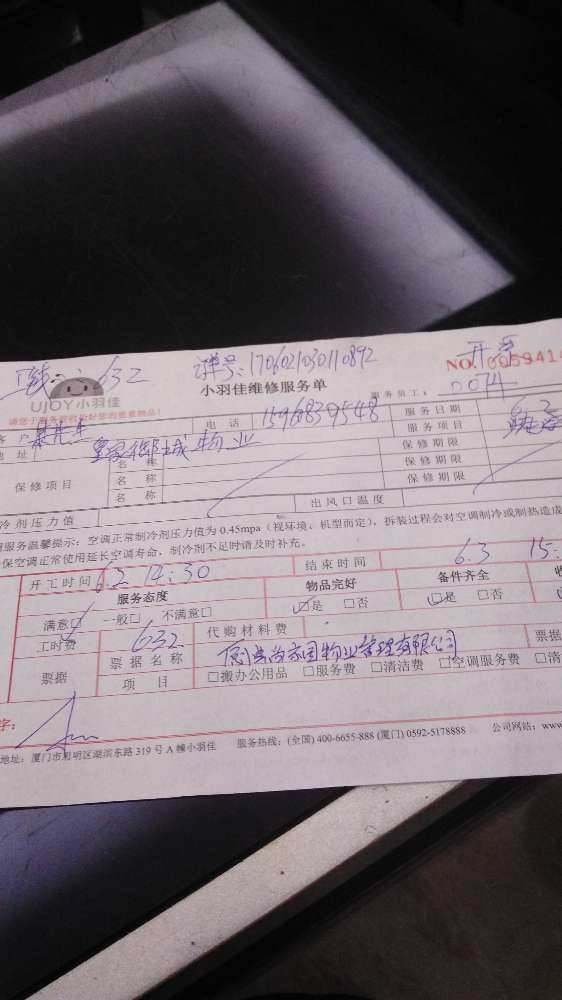 632 单号:1706021030110892 开票
UJOY小羽佳 小羽佳维修服务单 NO.005941
请您于服务前收拾好您的贵重物品! 服务员工: 0074
客户 先生 电话 1596839548 服务日期 6.2
地址 皇家 城物业 服务项目
保修项目 名称 保修期限
名称 保修期限
名称 保修期限
冷剂压力值 出风口温度
服务温馨提示:空调正常制冷剂压力值为0.45mpa(视环境、机型而定),拆装过程会对空调制冷或制热造成
保空调正常使用延长空调寿命,制冷剂不足时请及时补充。
开工时间 6.2 14:30 结束时间 6.3 15:
服务态度 物品完好 备件齐全
满意□ 一般□ 不满意□ □是 □否 □是 □否
工时费 632 代购材料费
票据 票据名称 家园物业管理有限公司 票据
项目 □搬办公用品 □服务费 □清洁费 □空调服务费 □清
字:
地址:厦门市思明区湖滨东路319号A幢小羽佳 服务热线:(全国)400-6655-888 (厦门)0592-5178888 公司网站:www